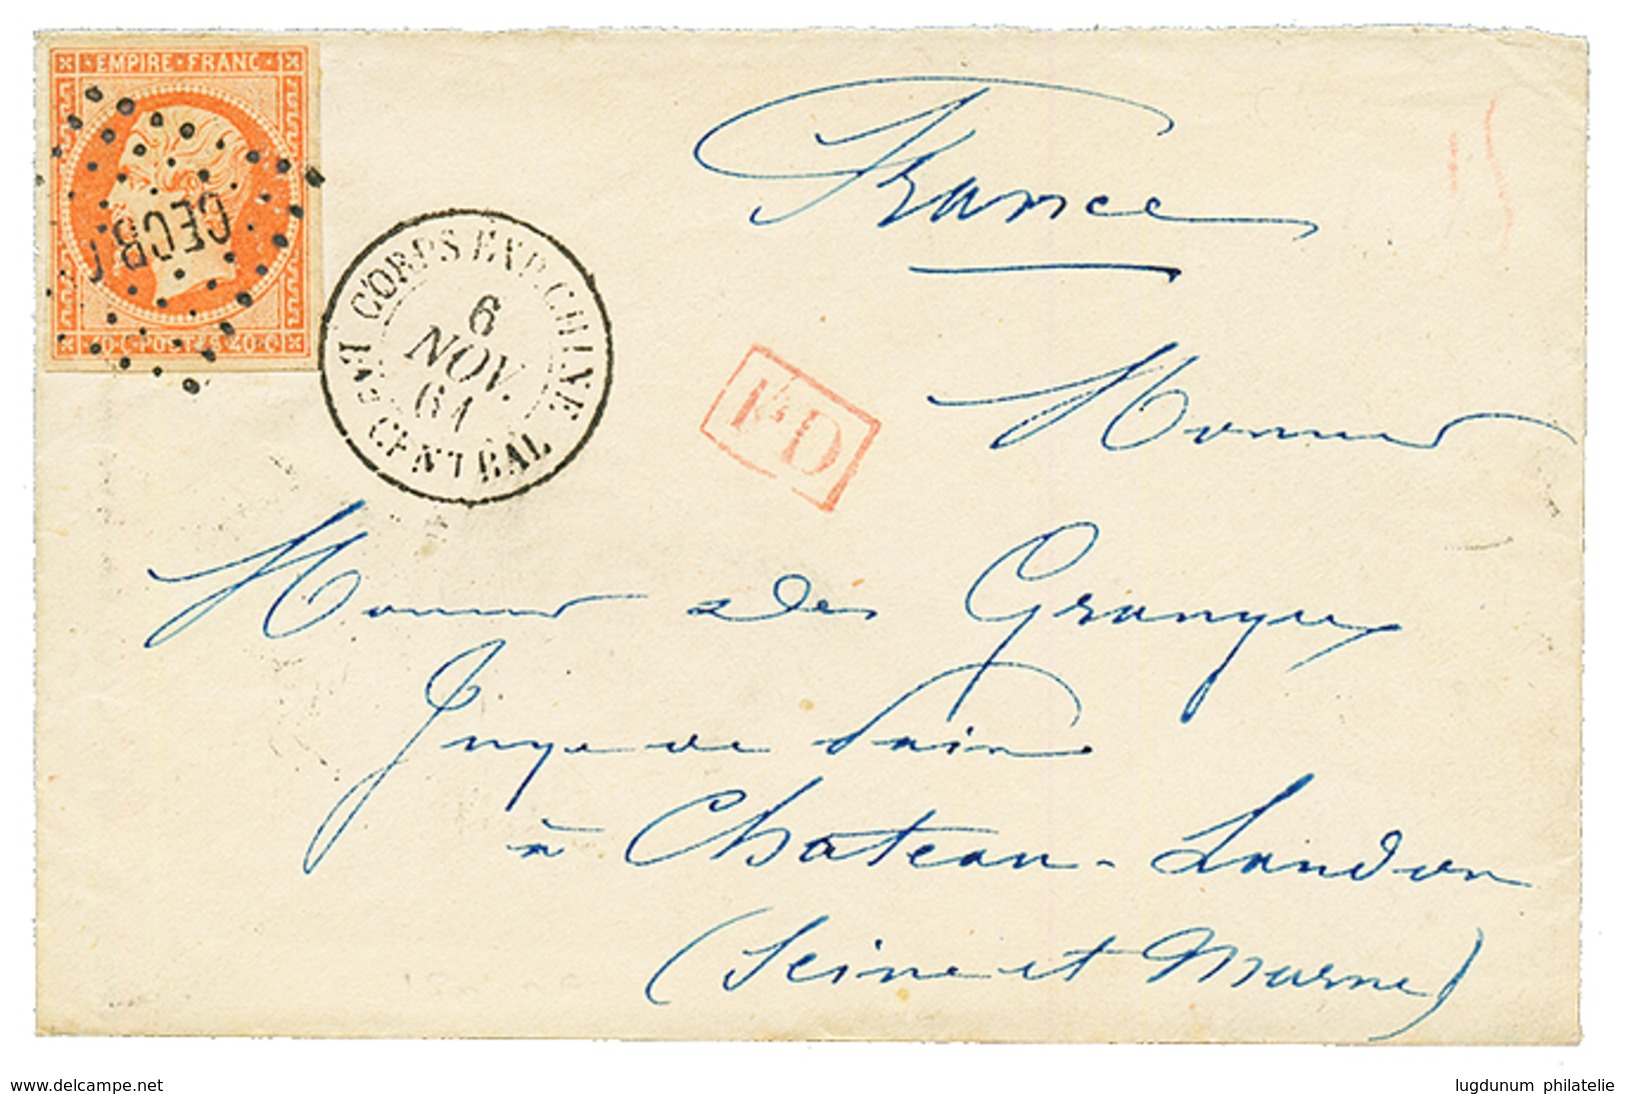 EMPIRE FRANC
40 C POSTES 40 C
CECB
CORPS EXP. CHINE
Bau CENTRAL
6
NOV.
61
PD
France
Monsieur
Monsieur des Granges
Juge de Paix
à Château-Landon
(Seine et Marne)
www.delcampe.net
lugdunum philatelie